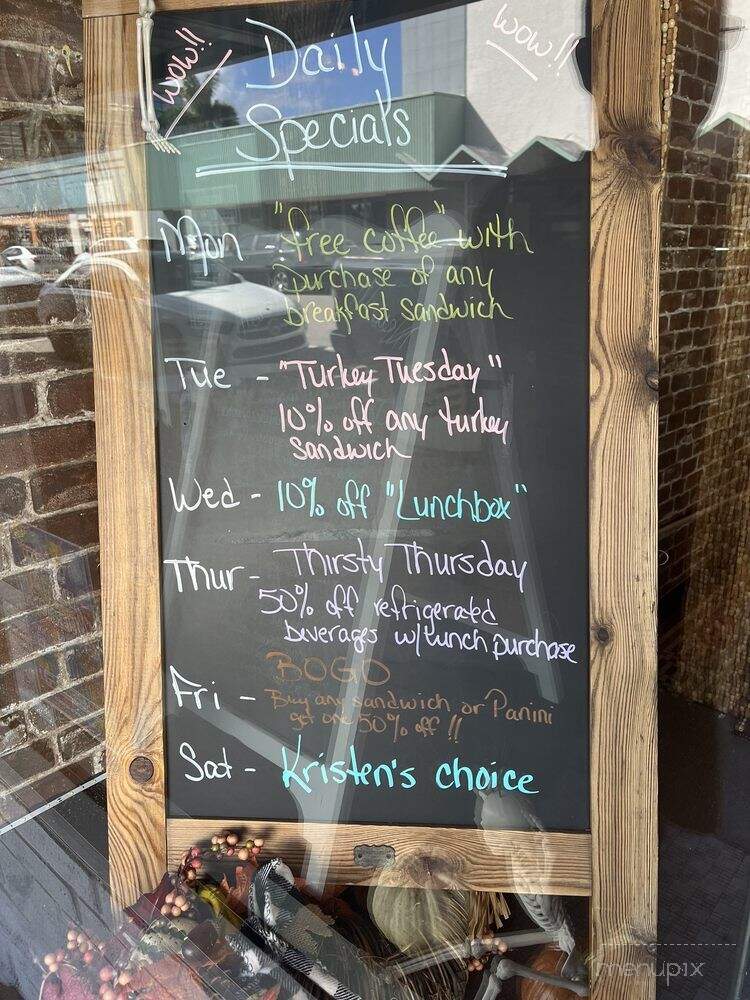 wow!!
wow!!
Daily
Specials
Mon - "free coffee" with
purchase of any
breakfast sandwich
Tue - "Turkey Tuesday"
10% off any turkey
sandwich
Wed - 10% off "Lunchbox"
Thur - Thirsty Thursday
50% off refrigerated
beverages w/ lunch purchase
BOGO
Fri - Buy any sandwich or Panini
get one 50% off!!
Sat - Kristen's choice
menupix